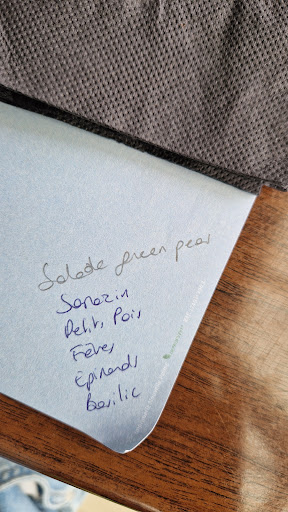 Salade green peas
Sarazin
Petits Pois
Fèves
Epinards
Basilic